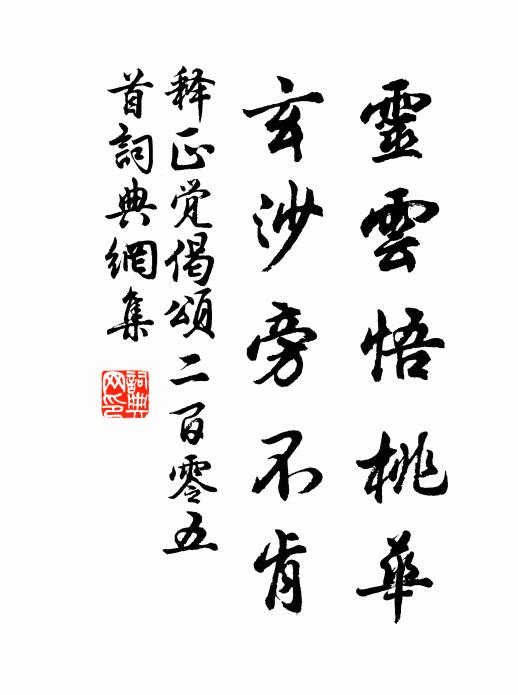 靈雲悟桃華
玄沙旁不肯
释正觉偈頌二百零五
首詞典網集
詞典
网印